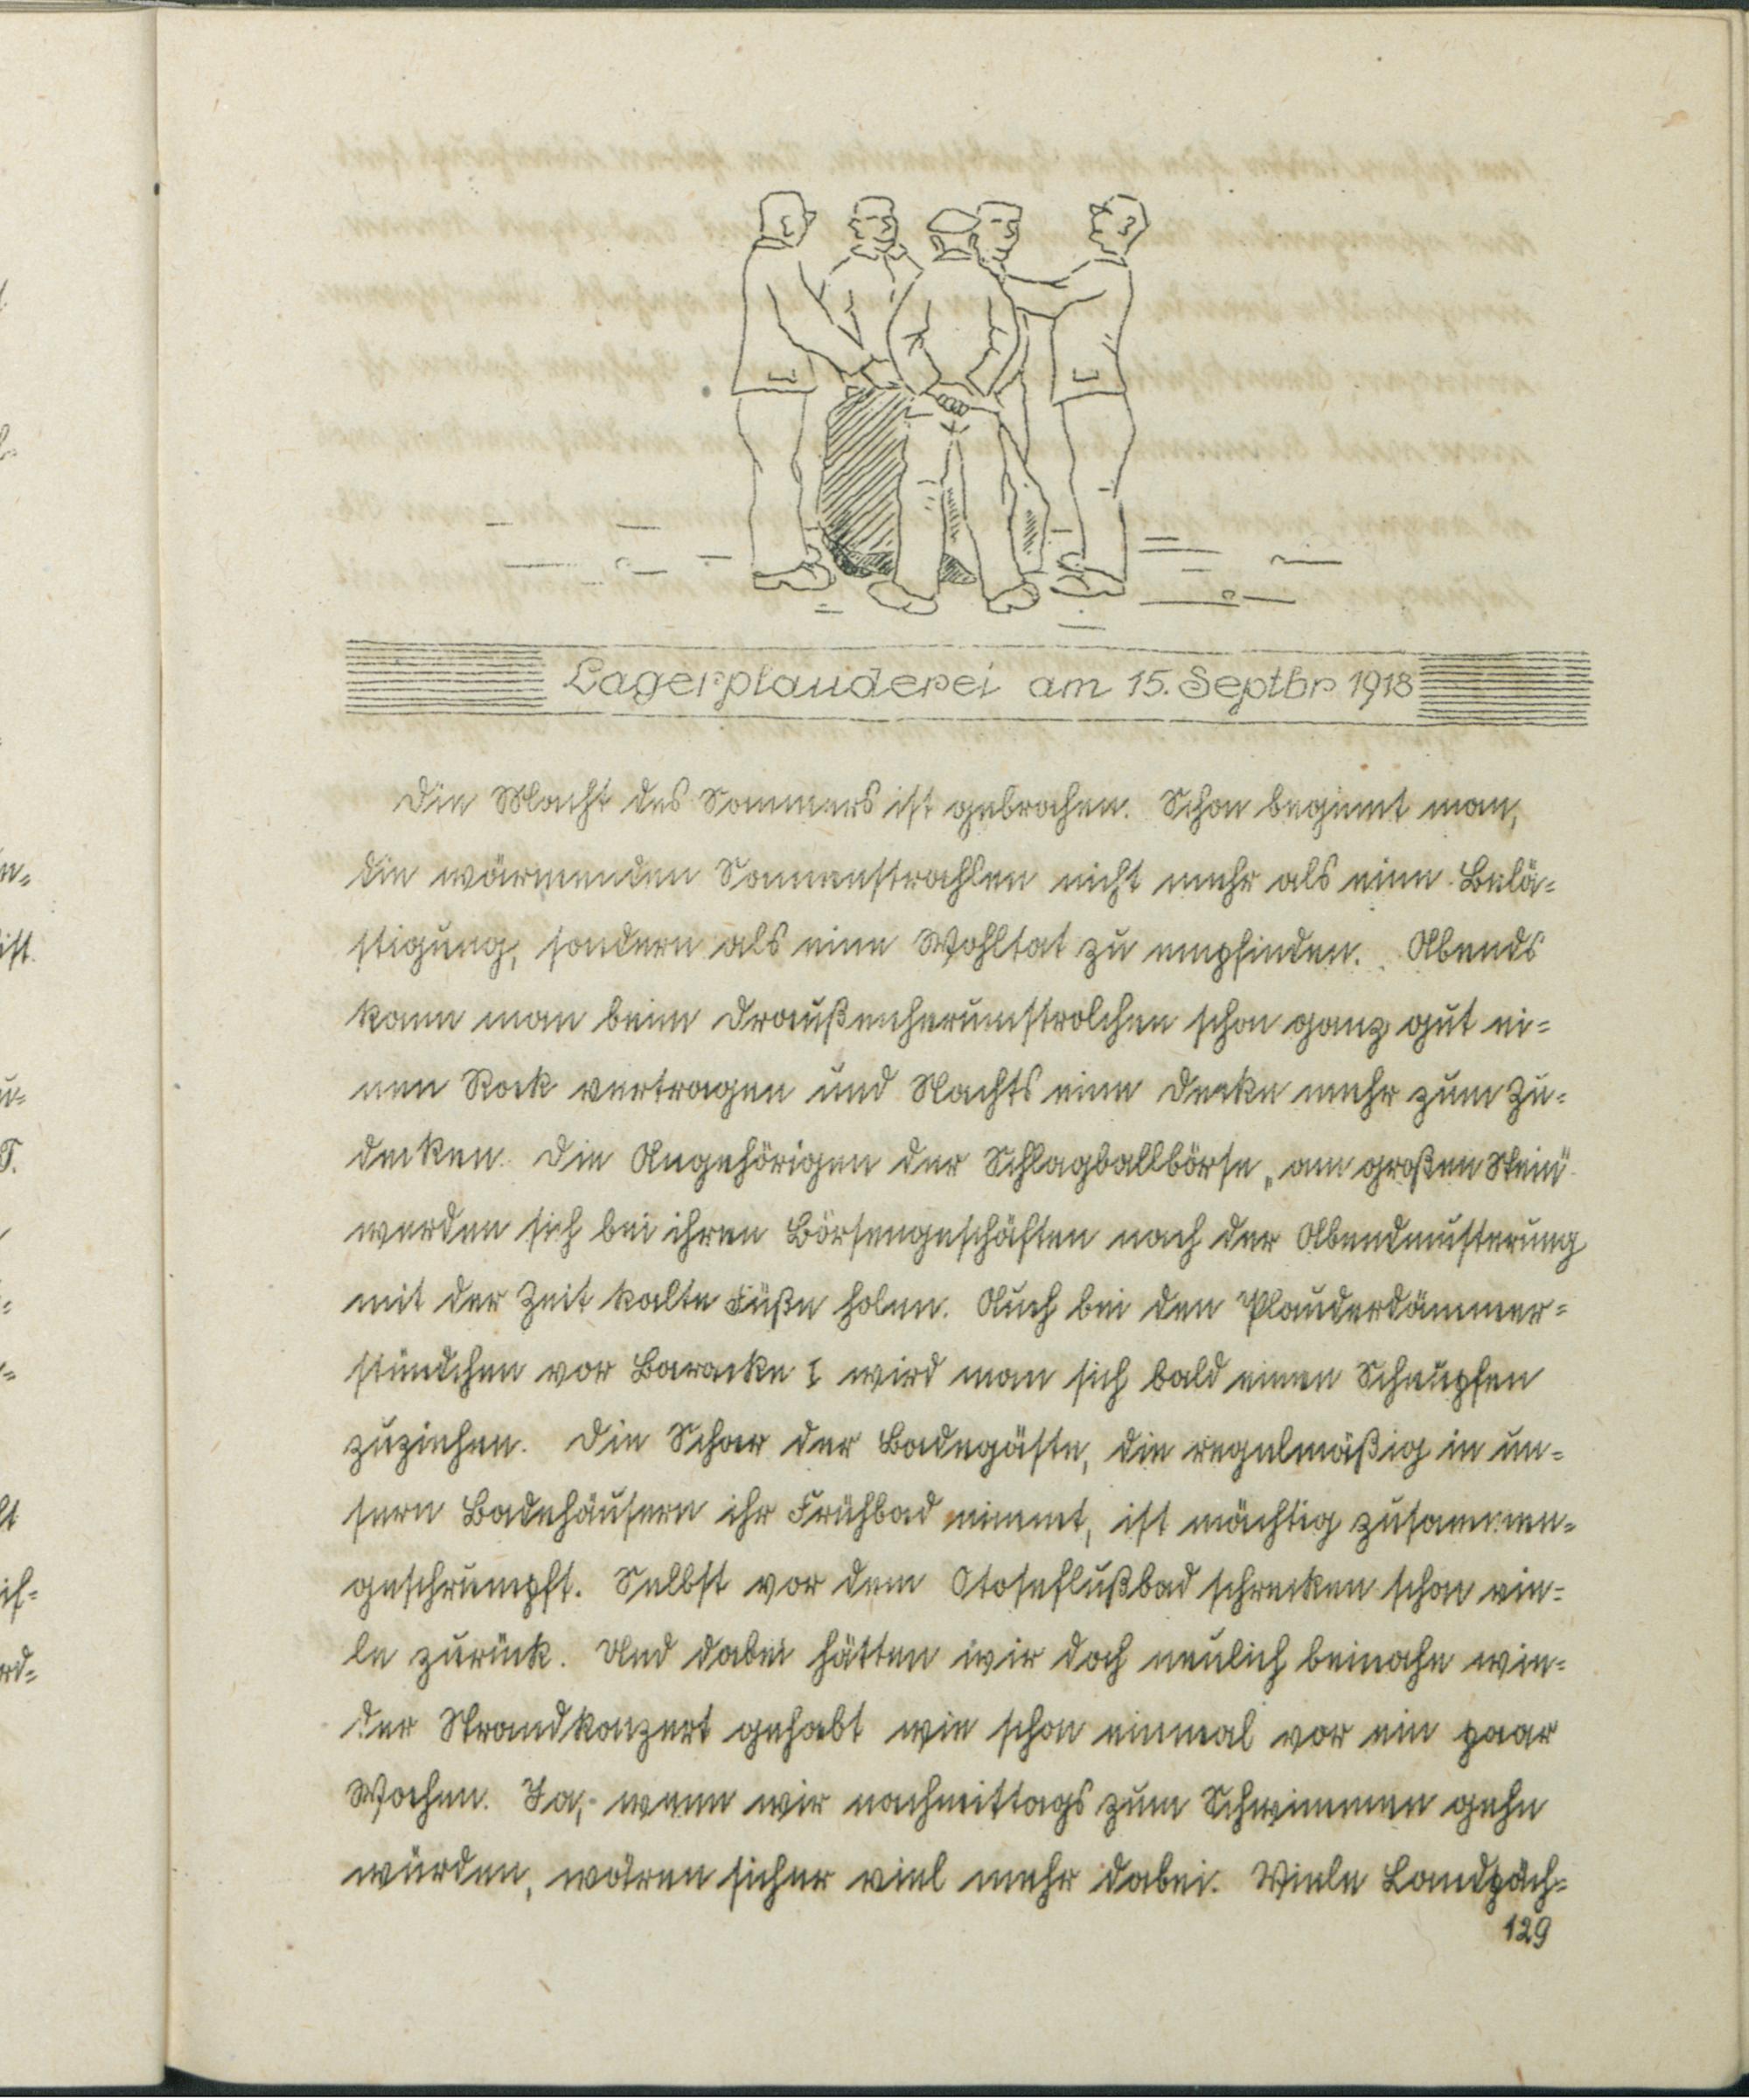 Lagerplauderei am 15. Septbr 1918
Die Macht des Sommers ist gebrochen. Schon beginnt man,
die wärmenden Sonnenstrahlen nicht mehr als eine Belä=
stigung, sondern als eine Wohltat zu empfinden. Abends
kann man beim Draußenherumstrolchen schon ganz gut ei=
nen Rock vertragen und Nachts eine Decke mehr zum Zu=
decken. Die Angehörigen der Schlagballbörse „am großen Stein"
werden sich bei ihren Börsengeschäften nach der Abendmusterung
mit der Zeit kalte Füße holen. Auch bei den Plauderdämmer=
stündchen vor Baracke I wird man sich bald einen Schnupfen
zuziehen. Die Schar der Badegäste, die regelmäßig in un=
sern Badehäusern ihr Frühbad nimmt, ist mächtig zusammen=
geschrumpft. Selbst vor dem Otoseflußbad schrecken schon vie=
le zurück. Und dabei hätten wir doch neulich beinahe wie=
der Strandkonzert gehabt wie schon einmal vor ein paar
Wochen. Ja, wenn wir nachmittags zum Schwimmen gehn
würden, wären sicher viel mehr dabei. Viele Landpäch=
129